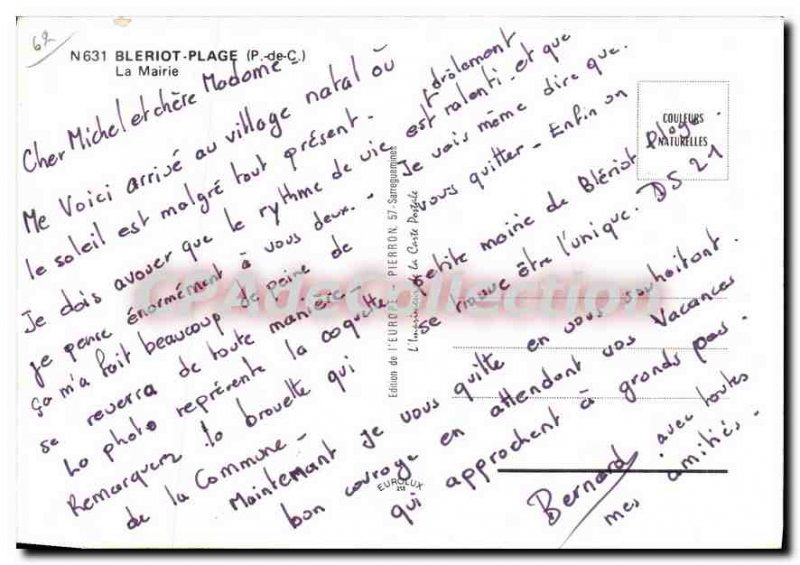 62
N 631 BLERIOT-PLAGE (P.-de-C.)
La Mairie
COULEURS
NATURELLES
Cher Michel et chère Madame -
Me Voici arrivé au village natal où
le soleil est malgré tout présent.
Je dois avouer que le rythme de vie est ralenti et que drôlement
je pense énormément à vous deux. - Je vois même dire que
ça m'a fait beaucoup de peine de vous quitter - Enfin on
se reverra de toute manière -
La photo représente la coquette petite mairie de Blériot Plage.
Remarquez la brouette qui se trouve être l'unique. DS 21
de la Commune -
Maintenant je vous quitte en vous souhaitant
bon courage en attendant vos Vacances
qui approchent à grands pas.
Bernard avec toutes
mes amitiés -
Edition de l'EUROPE PIERRON, 57-Sarreguemines
L'Imprimeur de la Carte Postale
EUROLUX
CPAdeCollection